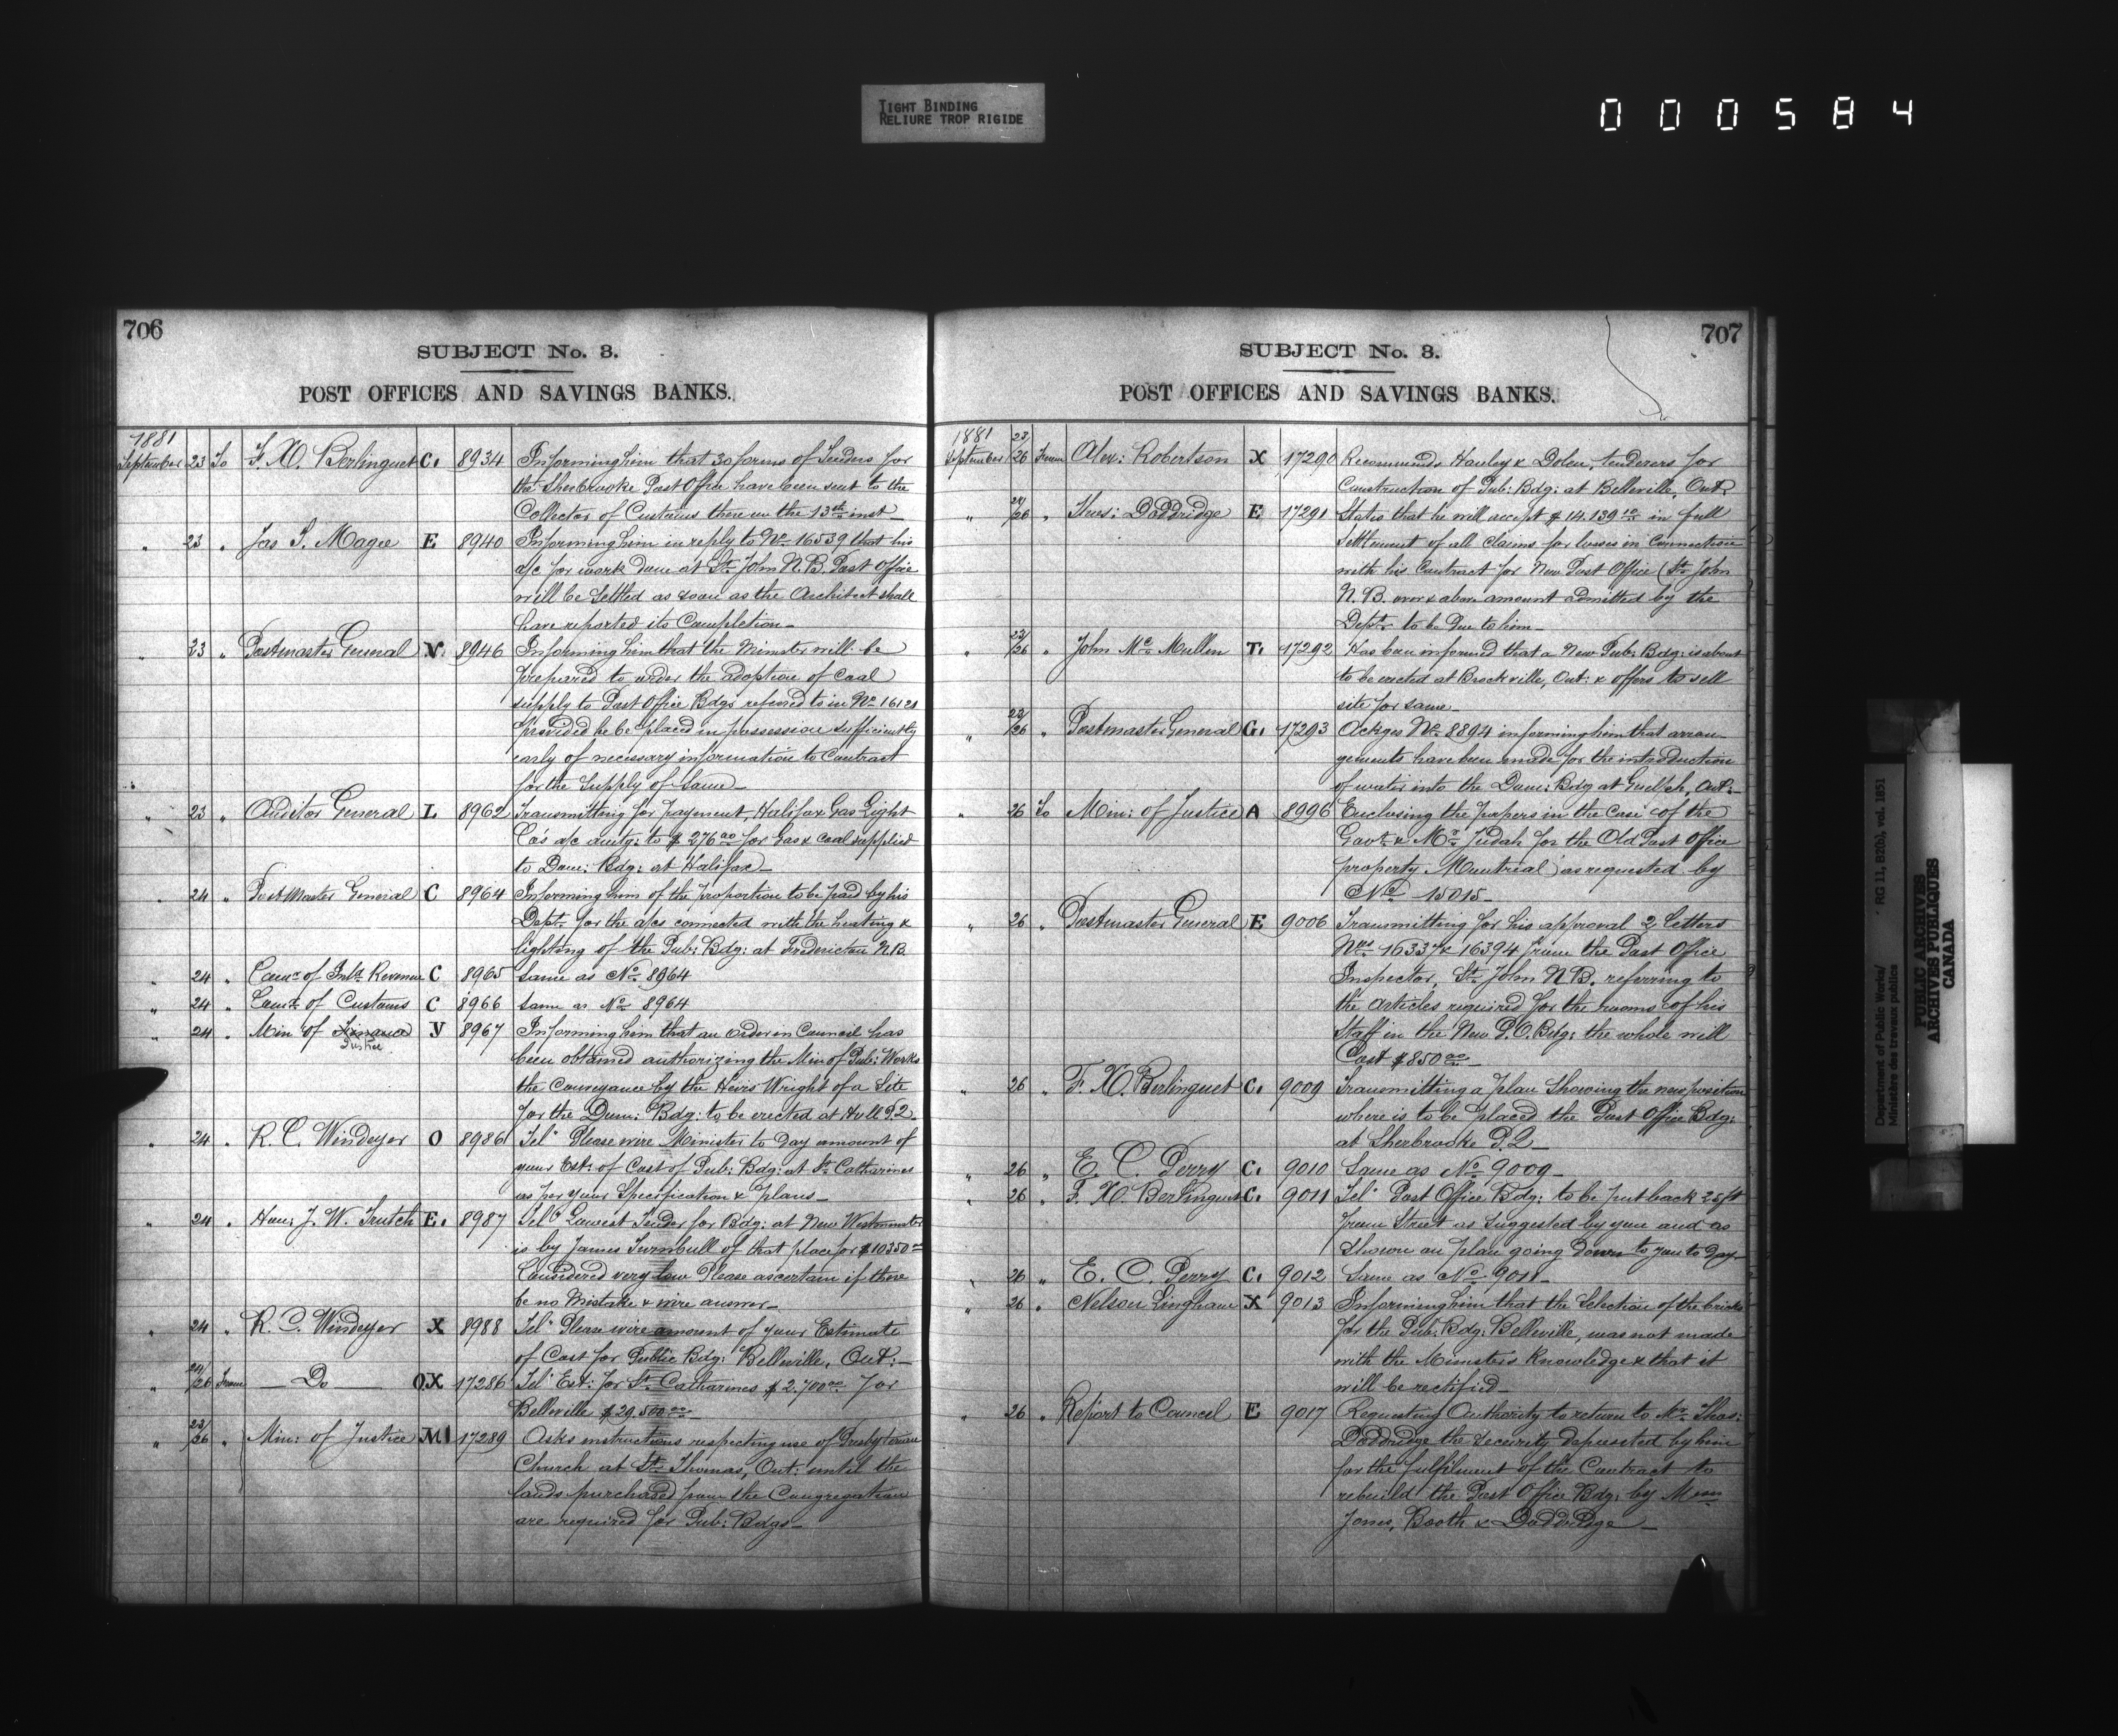 TIGHT BINDING
RELIURE TROP RIGIDE
000584
706
SUBJECT No. 3.
POST OFFICES AND SAVINGS BANKS.
1881
September 23 To F. X. Berlinguet C. 8934 Informing him that 30 forms of Tenders for
the Sherbrooke Post Office have been sent to the
Collector of Customs there on the 13th inst_
" 23 " Jas S. Magee E 8940 Informing him in reply to No 16539 that his
a/c for work done at St. John N.B. Post Office
will be settled as soon as the Architect shall
have reported its Completion_
" 23 " Postmaster General N. 8946 Informing him that the Minister will be
prepared to order the adoption of Coal
supply to Post Office Bdgs referred to in No 16121
provided he be placed in possession sufficiently
early of necessary information to Contract
for the Supply of Same_
" 23 " Auditor General L 8962 Transmitting for payment, Halifax Gas Light
Co's a/c amtg: to $276.00 for Gas & Coal supplied
to Dom: Bdg: at Halifax_
" 24 " Post Master General C 8964 Informing him of the proportion to be paid by his
Dept. for the a/cs connected with the heating &
lighting of the Pub: Bdg: at Fredericton N.B.
" 24 " Comr of Inld Revenue C 8965 Same as No 8964
" 24 " Comr of Customs C 8966 Same as No 8964
" 24 " Min of Finance V 8967 Informing him that an Order in Council has
Justice
been obtained authorizing the Min of Pub: Works
the Conveyance by the Heirs Wright of a Site
for the Dom: Bdg: to be erected at Hull P.Q.
" 24 " R. C. Windeyer O 8986 Tel" Please wire Minister to day amount of
your Est: of Cost of Pub: Bdg: at St. Catharines
as per your Specification & plans_
" 24 " Hon: J. W. Trutch E. 8987 Tel" Lowest Tender for Bdg: at New Westminster
is by James Turnbull of that place for $10350.00
Considered very low Please ascertain if there
be no Mistake & wire answer_
" 24 " R. C. Windeyer X 8988 Tel" Please wire amount of your Estimate
of Cost for Public Bdg: Belleville, Ont:_
" 24/26 From _ Do _ OX 17286 Tel" Est: for St. Catharines $2.700.00 For
Belleville $29.500.00_
" 23/26 " Min: of Justice M 17289 Asks instructions respecting use of Presbyterian
Church at St. Thomas, Ont: until the
lands purchased from the Congregation
are required for Pub: Bdgs_
707
SUBJECT No. 3.
POST OFFICES AND SAVINGS BANKS.
1881
September 23/26 From Alex: Robertson X 17290 Recommends Hanley & Dolen, tenderers for
Construction of Pub: Bdg: at Belleville, Ont.
" 24/26 " Thos: Doddridge E 17291 States that he will accept $14.139.10 in full
Settlement of all Claims for losses in Connection
with his Contract for New Post Office (St. John
N.B. over & above amount admitted by the
Dept. to be Due to him_
" 22/26 " John Mc Mullen T. 17292 Has been informed that a New Pub: Bdg: is about
to be erected at Brockville, Ont: & offers to sell
site for same_
" 22/26 " Postmaster General G. 17293 Ackges No 8894 informing him that arran-
gements have been made for the introduction
of water into the Dom: Bdg at Guelph, Ont:_
" 26 To Min: of Justice A 8996 Enclosing the papers in the Case of the
Govt & Mr Judah for the Old Post Office
property Montreal as requested by
No 15015_
" 26 " Postmaster General E 9006 Transmitting for his approval 2 Letters
Nos 16337 & 16394 from the Post Office
Inspector, St. John N.B. referring to
the Articles required for the rooms of his
Staff in the New P.O. Bdg: the whole will
Cost $850.00_
" 26 " F. X. Berlinguet C. 9009 Transmitting a plan Showing the new position
where is to be placed the Post Office Bdg:
at Sherbrooke P.Q_
" 26 " E. C. Perry C. 9010 Same as No 9009_
" 26 " F. X. Berlinguet C. 9011 Tel" Post Office Bdg: to be put back 25 ft
from Street as Suggested by you and as
Shown on plan going down to you to day_
" 26 " E. C. Perry C. 9012 Same as No 9011_
" 26 " Nelson Lingham X 9013 Informing him that the Selection of the bricks
for the Pub: Bdg: Belleville, was not made
with the Minister's Knowledge & that it
will be rectified_
" 26 " Report to Council E 9017 Requesting Authority to return to Mr. Thos:
Doddridge the Security deposited by him
for the fulfilment of the Contract to
rebuild the Post Office Bdg: by Messrs
Jones, Booth & Doddridge_
Department of Public Works/ RG 11, B2(b), vol. 1851
Ministère des travaux publics
PUBLIC ARCHIVES
ARCHIVES PUBLIQUES
CANADA